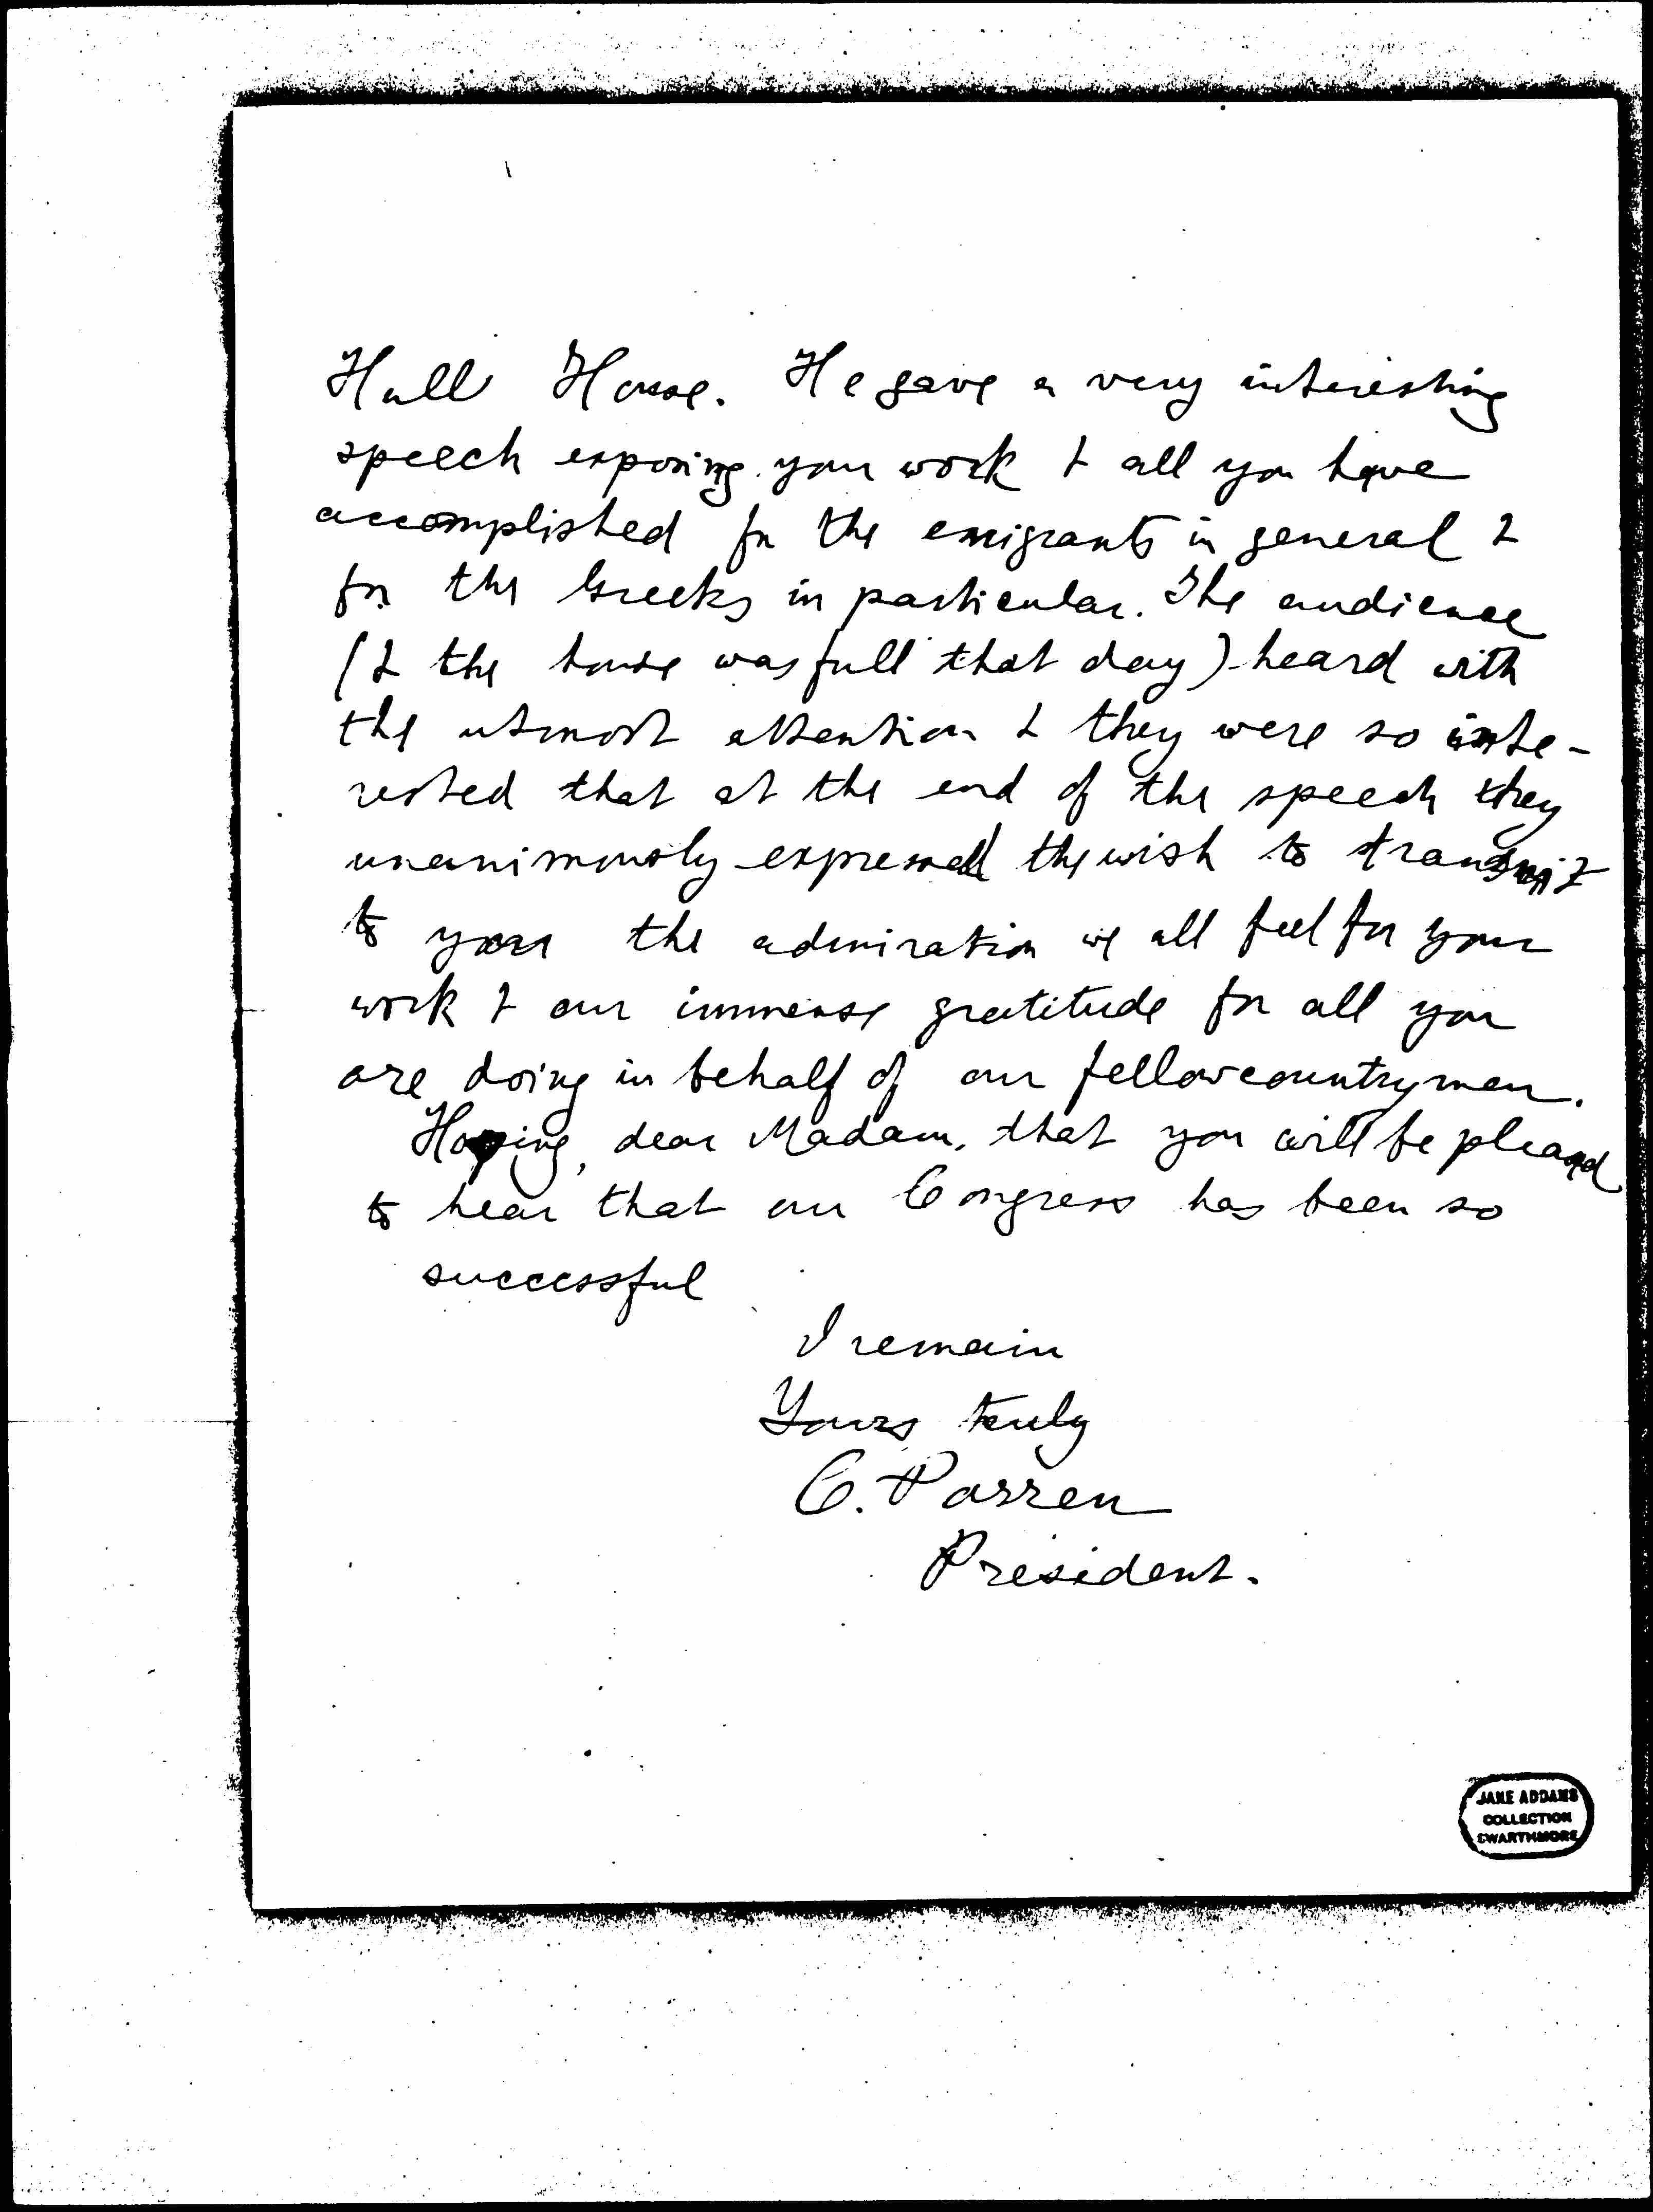 Hull House. He gave a very interesting
speech exposing your work & all you have
accomplished for the emigrants in general &
for the Greeks in particular. The audience
(& the house was full that day) heard with
the utmost attention & they were so inte-
rested that at the end of the speech they
unanimously expressed the wish to transmit
to you the admiration we all feel for your
work & our immense gratitude for all you
are doing in behalf of our fellowcountrymen.
Hoping, dear Madam, that you will be pleased
to hear that our Congress has been so
successful
I remain
Yours truly
C. Parren
President.
JANE ADDAMS
COLLECTION
SWARTHMORE